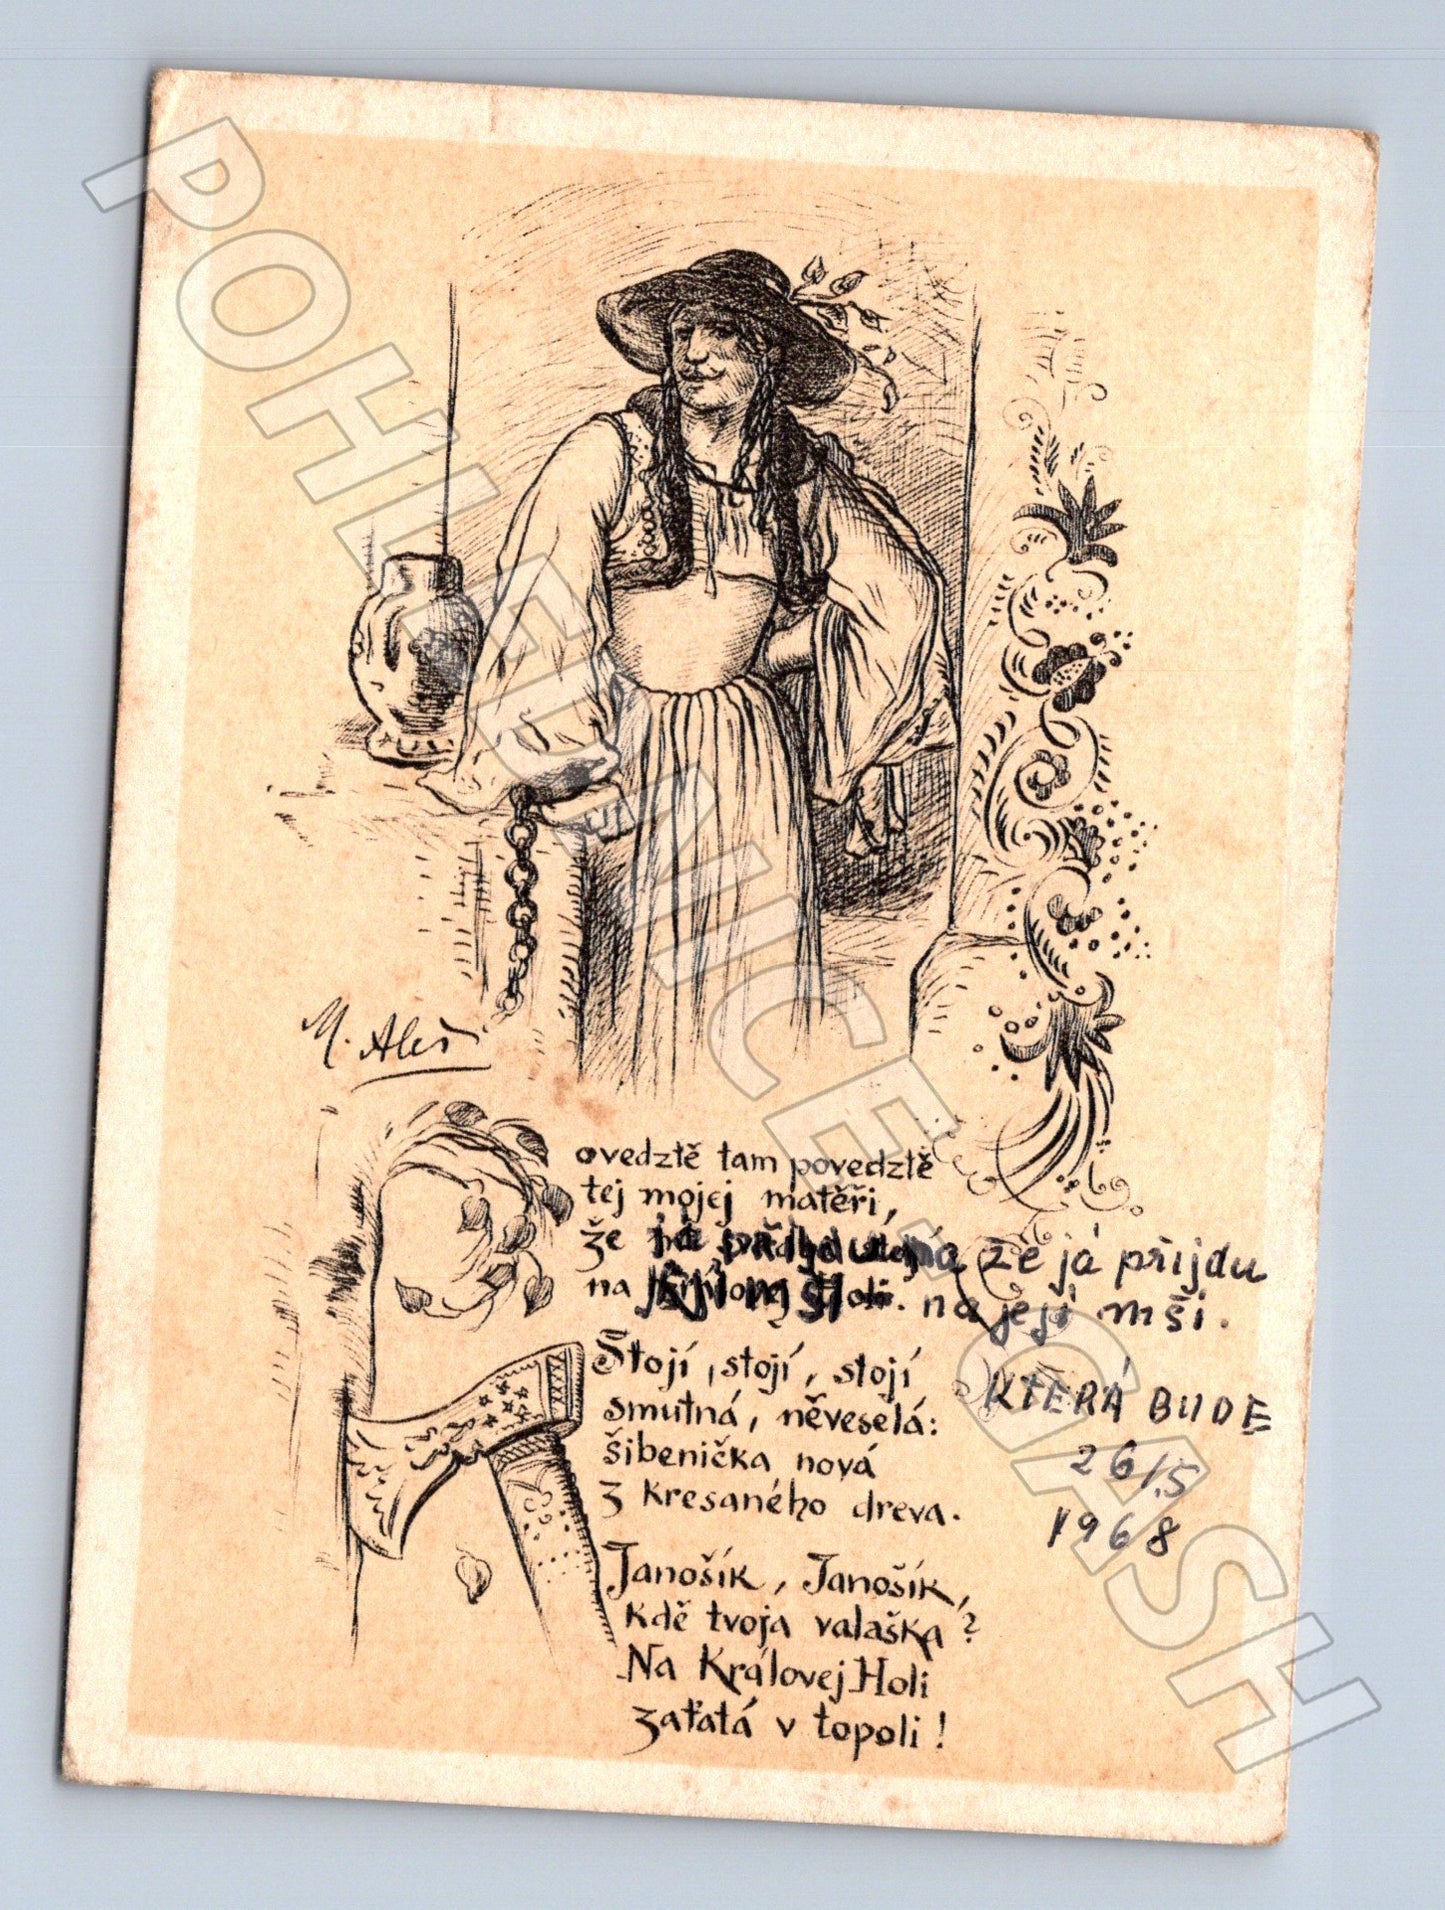 POHLEDNICE.CASH
M. Aleš
Povedztě tam povedztě
tej mojej matěři,
že
na
že já přijdu
na její mši.
KTERÁ BUDE
26/5
1968
Stojí, stojí, stojí
smutná, něveselá:
šibenička nová
z kresaného dreva.
Janošík, Janošík,
kdě tvoja valaška?
Na Královej Holi
zaťatá v topoli!